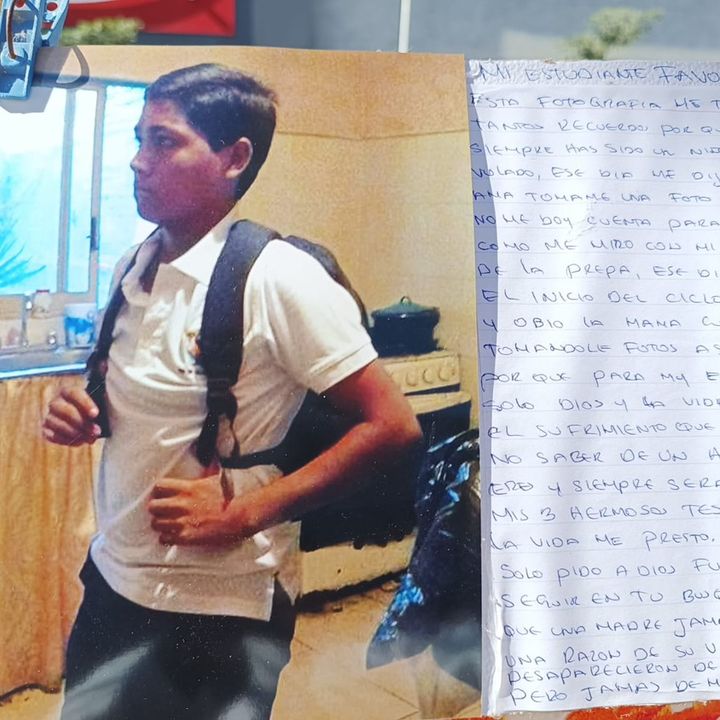 MI ESTUDIANTE FAVO
ESTA FOTOGRAFIA ME T
TANTOS RECUERDOS POR QU
SIEMPRE HAS SIDO UN
VOLADO, ESE DIA ME DI
AMA TOMAME UNA FOTO
NO ME DOY CUENTA PARA
COMO ME MIRO CON MI
DE LA PREPA, ESE DI
EL INICIO DEL CICLO
Y OBIO LA MAMA
TOMANDOLE FOTOS A
POR QUE PARA MY E
SOLO DIOS Y LA VIDA
EL SUFRIMIENTO QUE
NO SABER DE UN
ERES Y SIEMPRE SERA
MIS 3 HERMOSOS TES
LA VIDA ME PRESTO.
SOLO PIDO A DIOS FU
SEGUIR EN TU BUS
QUE UNA MADRE JAMA
UNA RAZON DE SU V
DESAPARECIERON DE
PERO JAMAS DE M